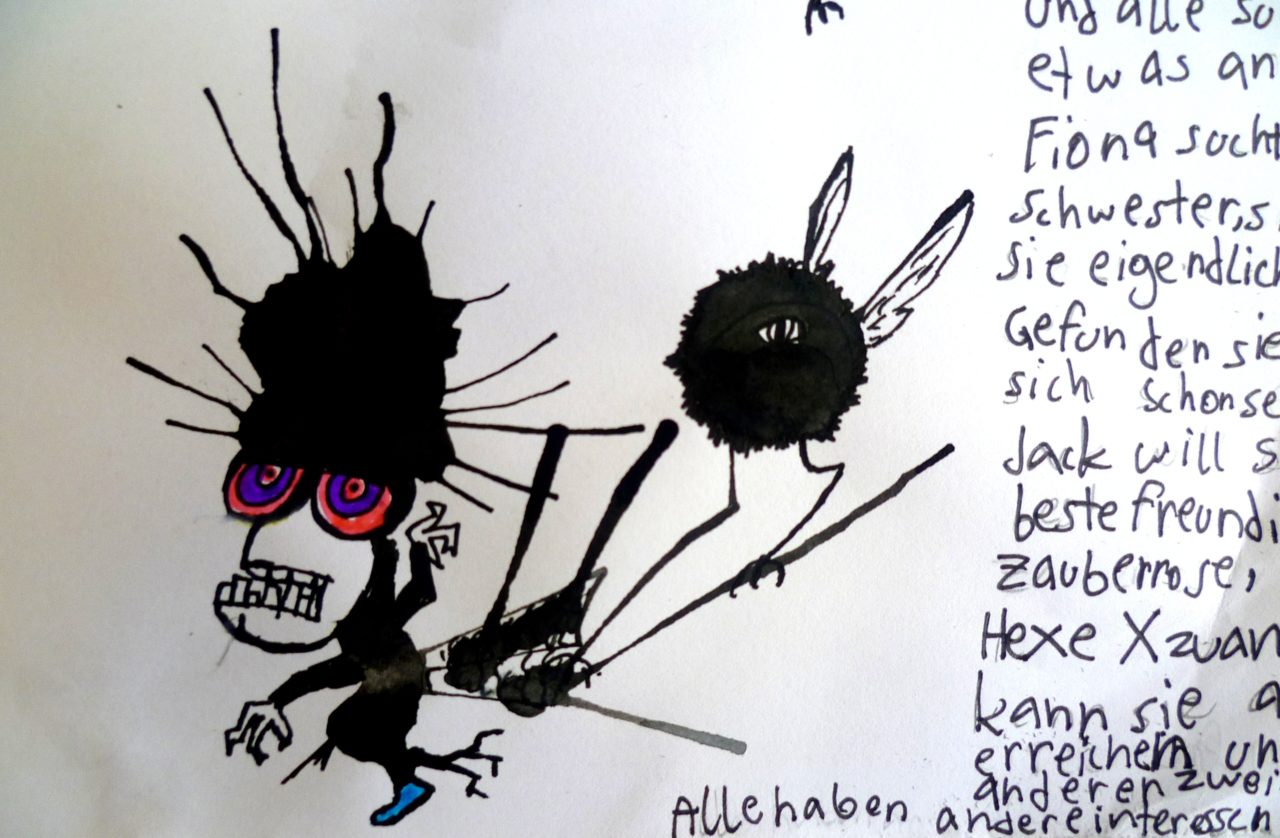 und alle so
etwas an
Fiona sucht
schwester,s
sie eigendlich
Gefunden sie
sich schonse
Jack will s
beste freundi
zauberrose,
Hexe Xzuan
kann sie a
erreichem un
anderen zwei
Alle haben andere interessen